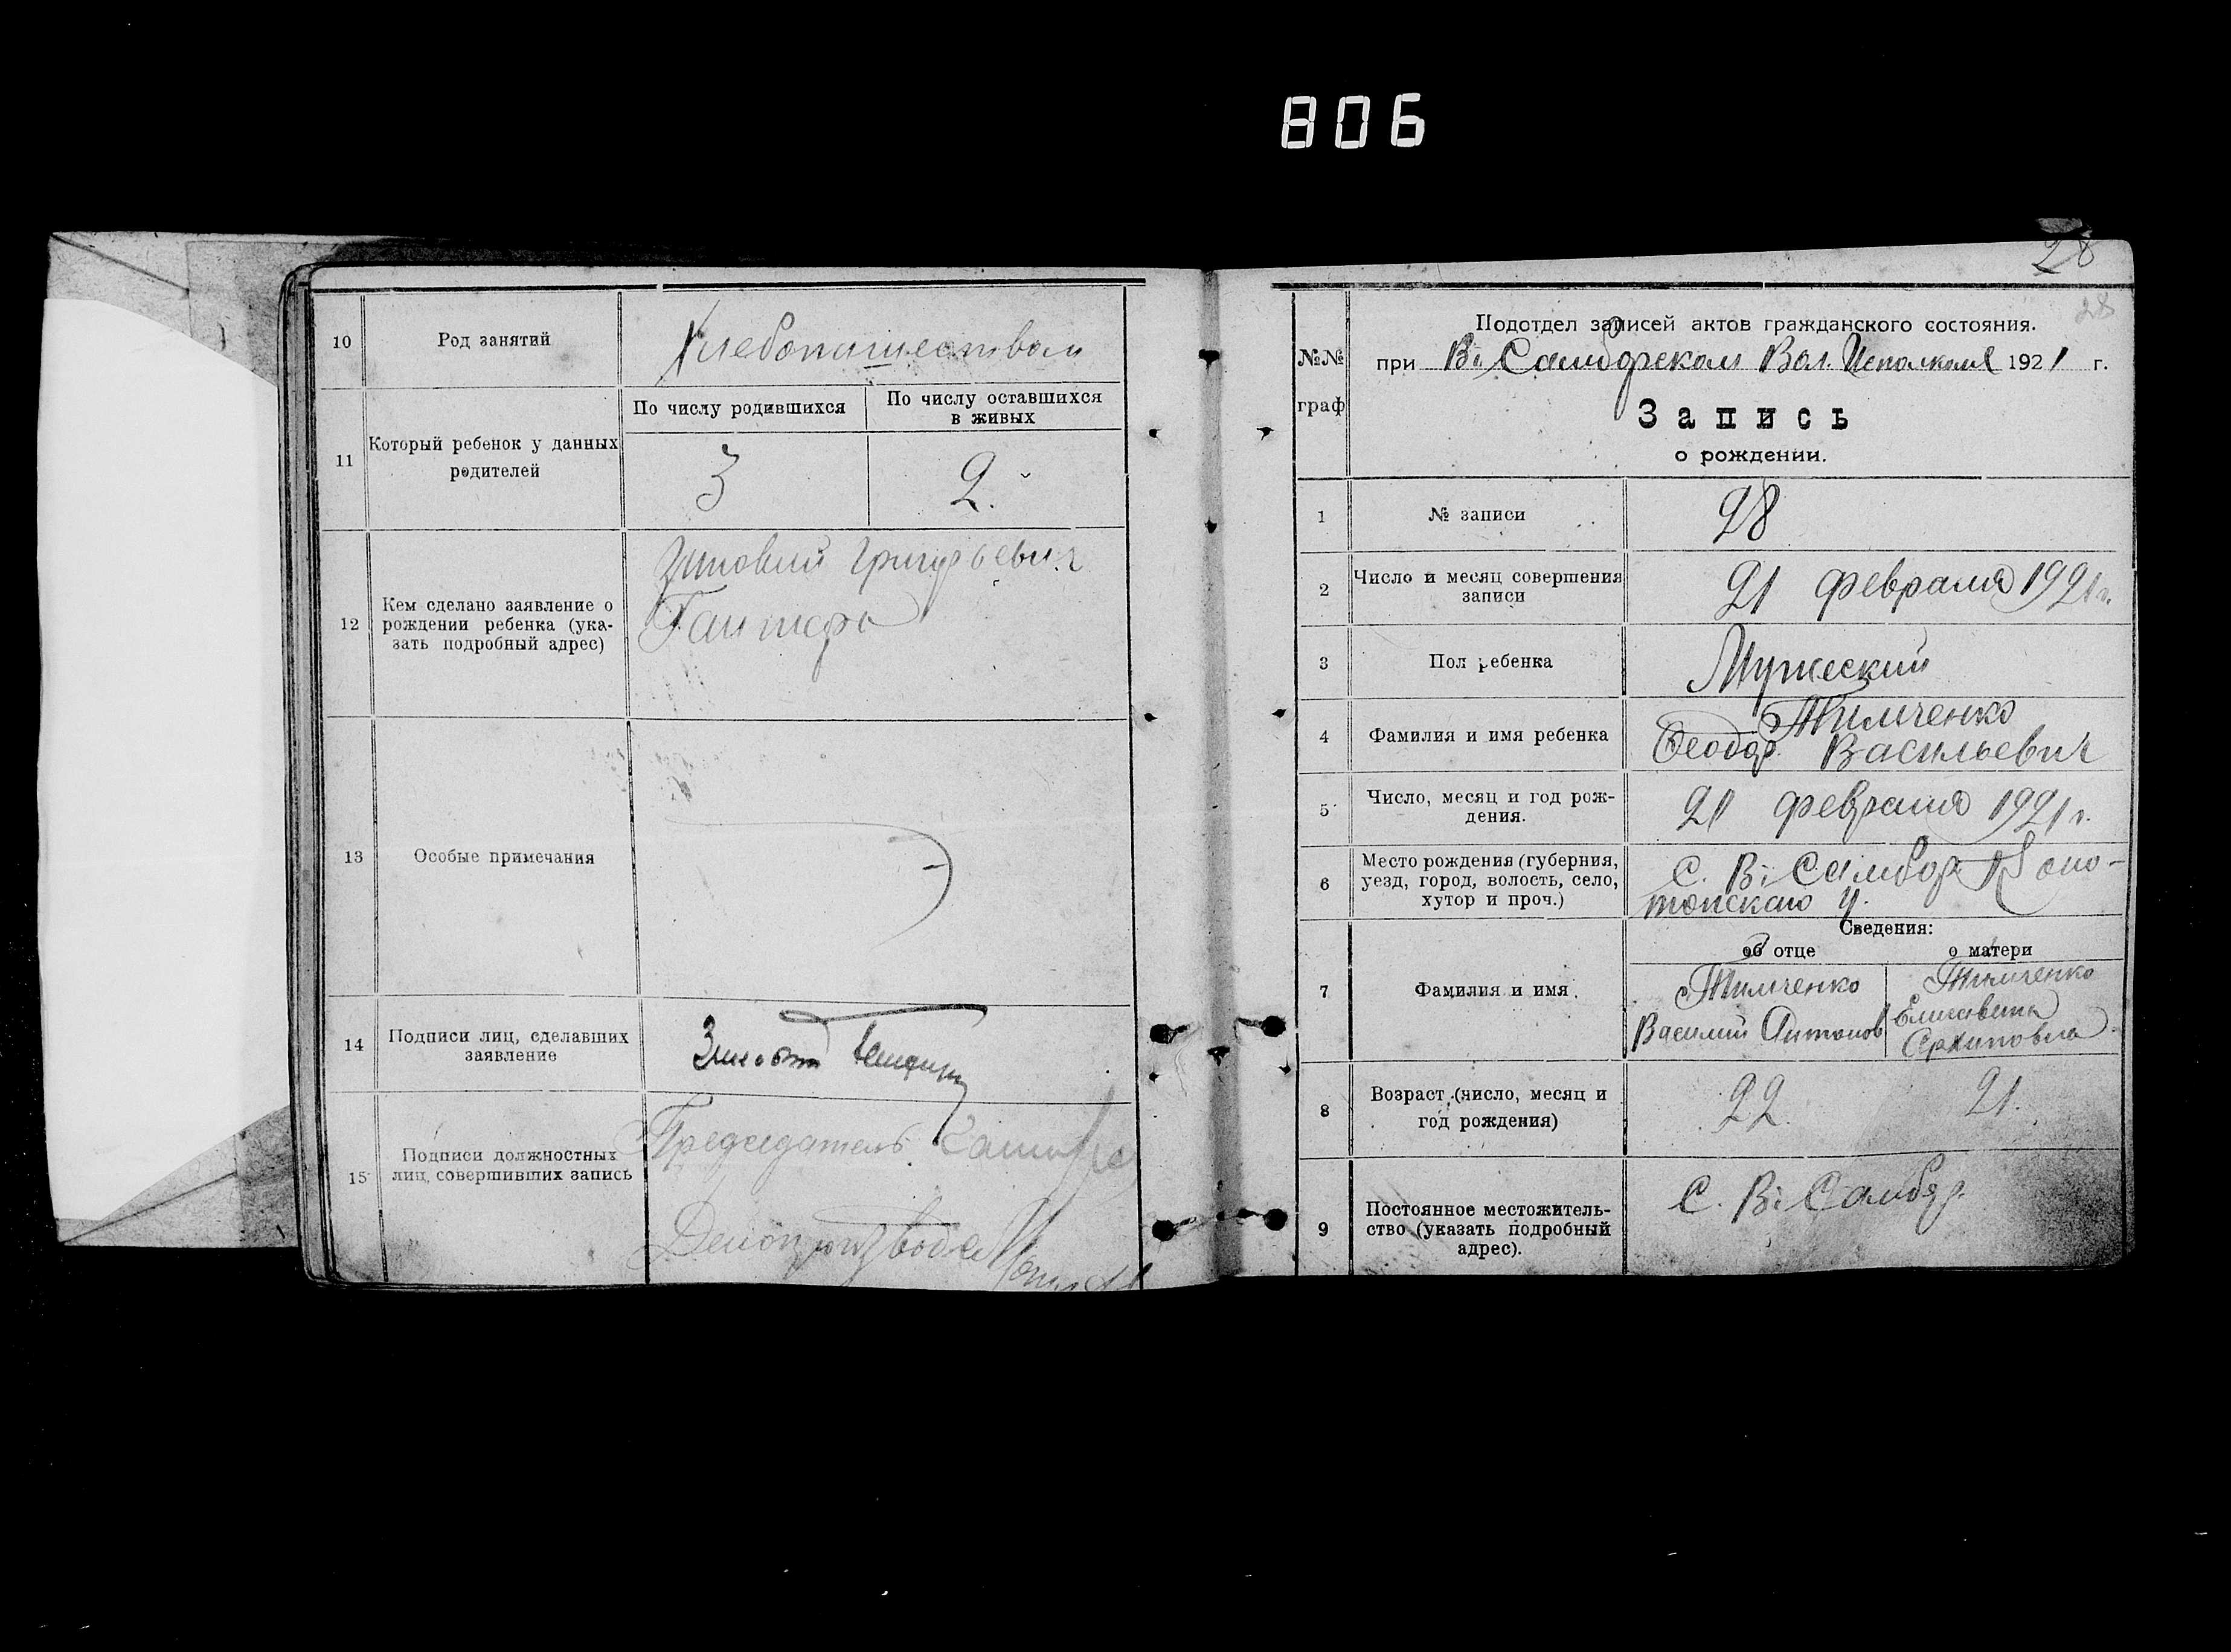 806
10
Род занятий
Хлебопашеством
11
Который ребенок у данных
родителей
По числу родившихся
По числу оставшихся
в живых
3
2.
12
Кем сделано заявление о
рождении ребенка (ука-
зать подробный адрес)
Зиновий Григорьевич
13
Особые примечания
14
Подписи лиц, сделавших
заявление
15
Подписи должностных
лиц, совершивших запись
Председатель
Делопроизвод
28
28
№№
граф
Подотдел записей актов гражданского состояния.
при В. Самборском Вол. Исполкоме 1921 г.
Запись
о рождении.
1
№ записи
28
2
Число и месяц совершения
записи
21 февраля 1921 г.
3
Пол ребенка
Мужеский
4
Фамилия и имя ребенка
Тимченко
Феодор Васильевич
5
Число, месяц и год рож-
дения.
21 февраля 1921 г.
6
Место рождения (губерния,
уезд, город, волость, село,
хутор и проч.)
С. В. Самбор Коно-
топскаго у.
Сведения:
об отце
о матери
7
Фамилия и имя
Тимченко
Василий Антонов
Тимченко
Елисавета
Архиповна
8
Возраст (число, месяц и
год рождения)
22
21.
9
Постоянное местожитель-
ство (указать подробный
адрес).
С. В. Самбор